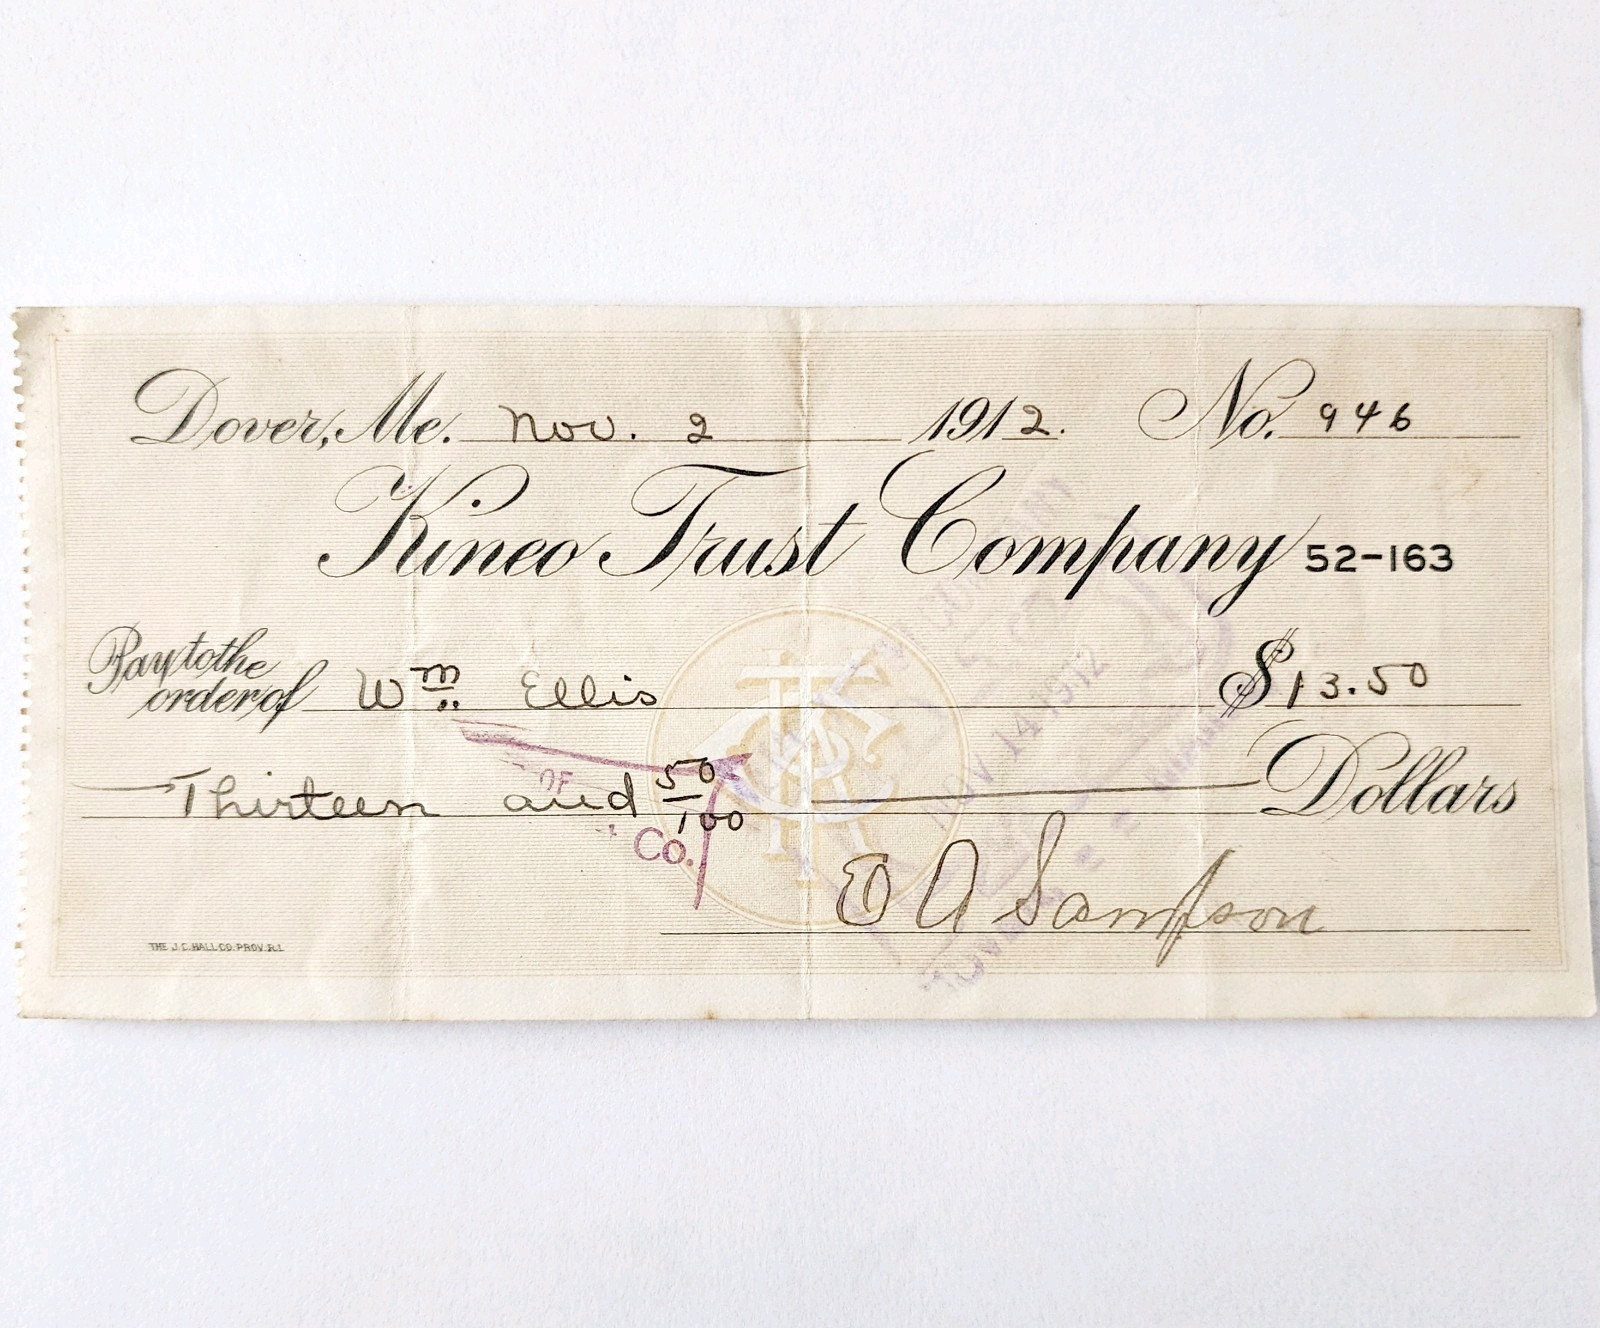 Dover, Me. Nov. 2 1912. No. 946
Kineo Trust Company 52-163
Pay to the order of Wm. Ellis $13.50
Thirteen and 50/100 Dollars
Co.
E A Sampson
THE J.C. HALL CO. PROV. R.I.
NOV 14 1912